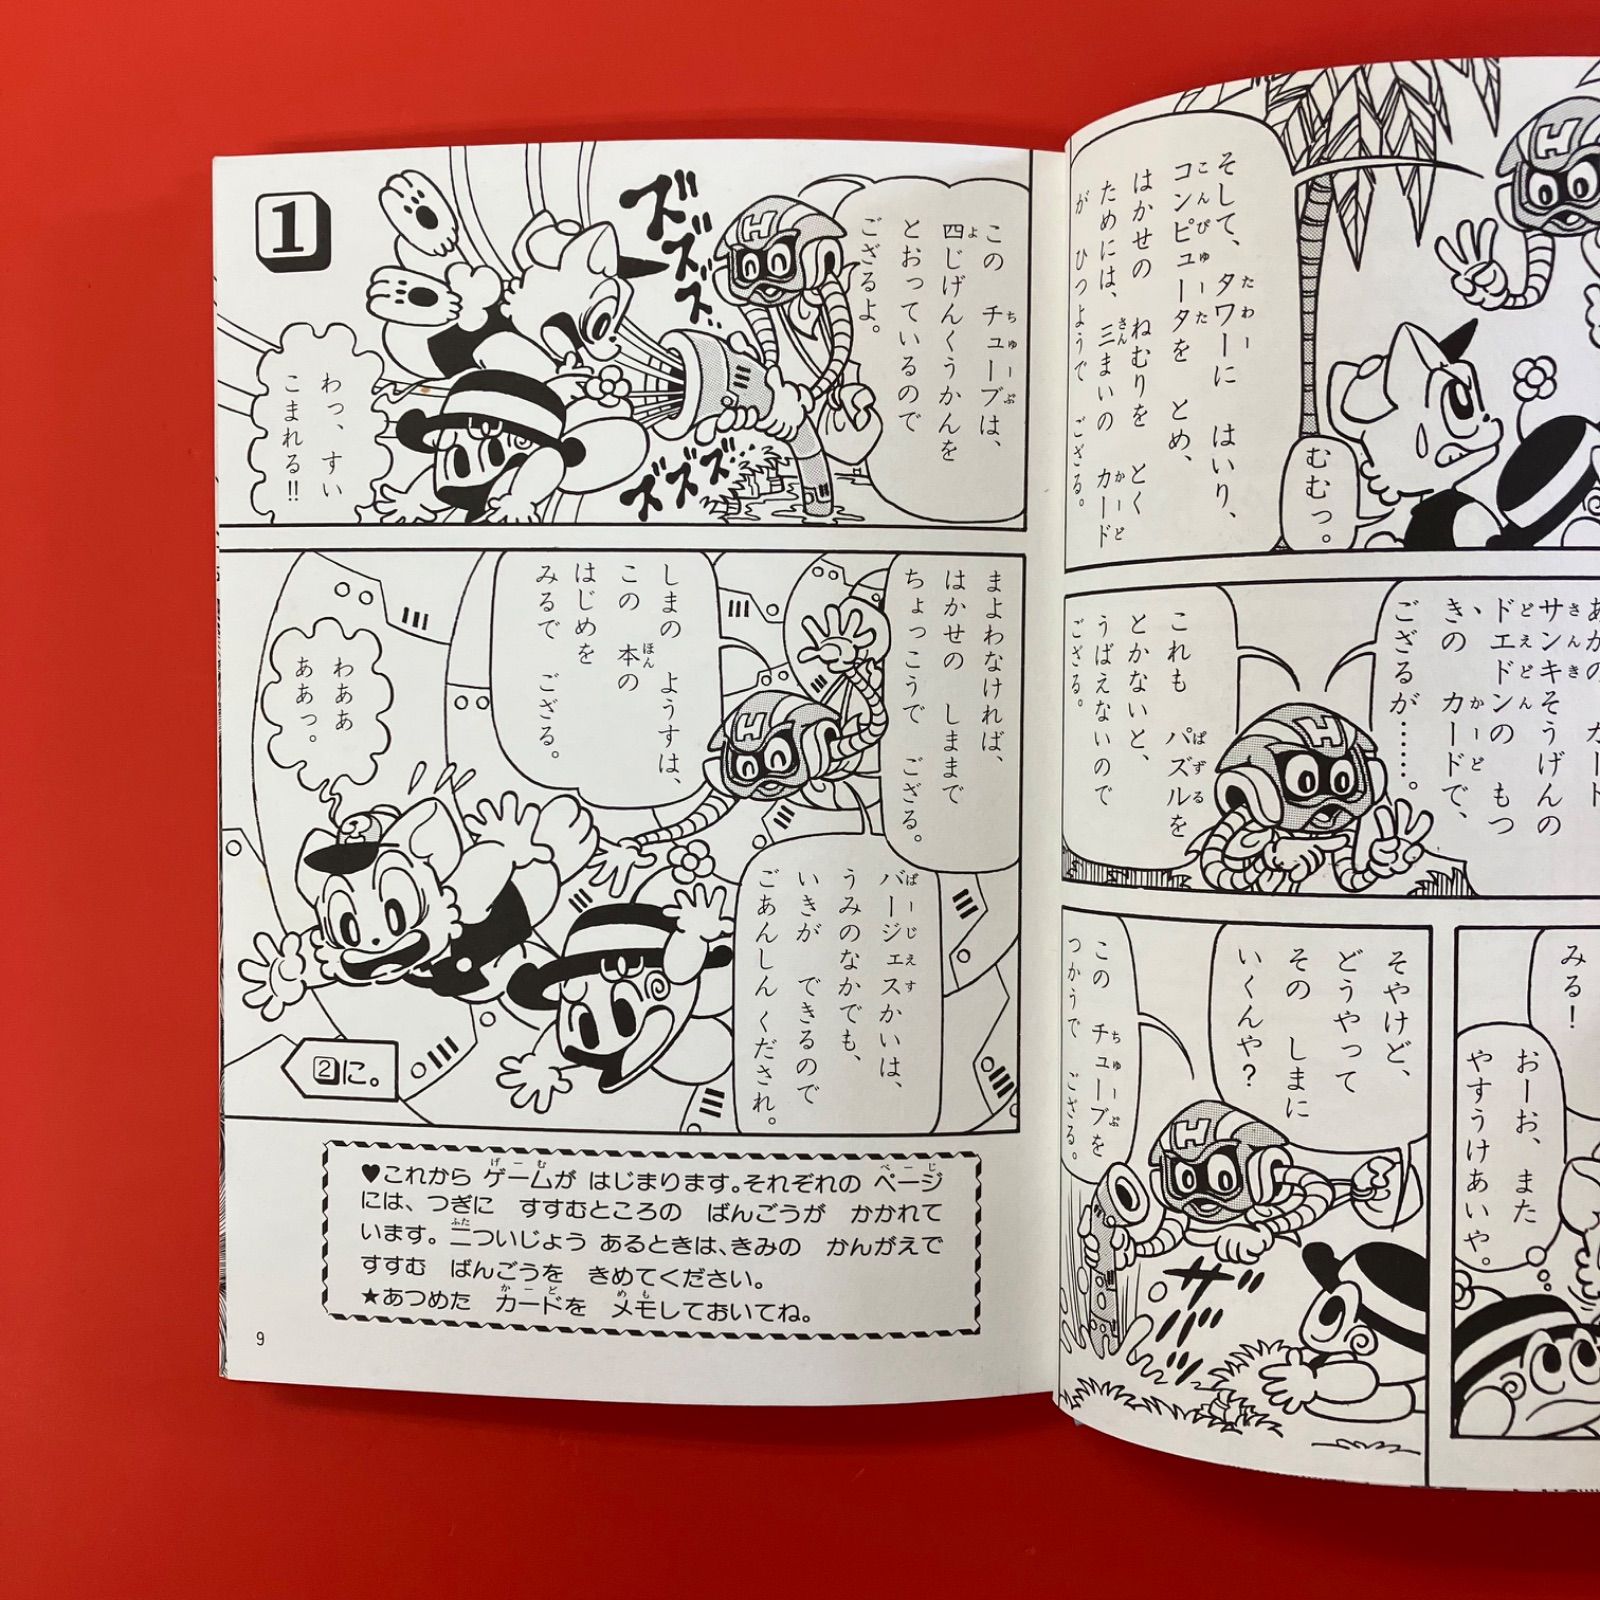 そして、タワーに はいり、
コンピュータを とめ、
はかせの ねむりを とく
ためには、三まいの カード
が ひつようで ござる。
むむっ。
サンキそうげんの
ドエドンの もつ
きの カードで、
ござるが……。
これも パズルを
とかないと、
うばえないので
ござる。
みる!
おーお、また
やすうけあいや。
そやけど、
どうやって
その しまに
いくんや?
この チューブを
つかうで ござる。
ザザザ
1
この チューブは、
四じげんくうかんを
とおっているので
ござるよ。
ズズズ…
ズズズ
わっ、すい
こまれる!!
まよわなければ、
はかせの しままで
ちょっこうで ござる。
しまの ようすは、
この 本の
はじめを
みるで ござる。
バージェスかいは、
うみのなかでも、
いきが できるので
ごあんしん くだされ。
わああ
ああっ。
2に。
♥これから ゲームが はじまります。それぞれの ページ
には、つぎに すすむところの ばんごうが かかれて
います。二ついじょう あるときは、きみの かんがえで
すすむ ばんごうを きめてください。
★あつめた カードを メモしておいてね。
9